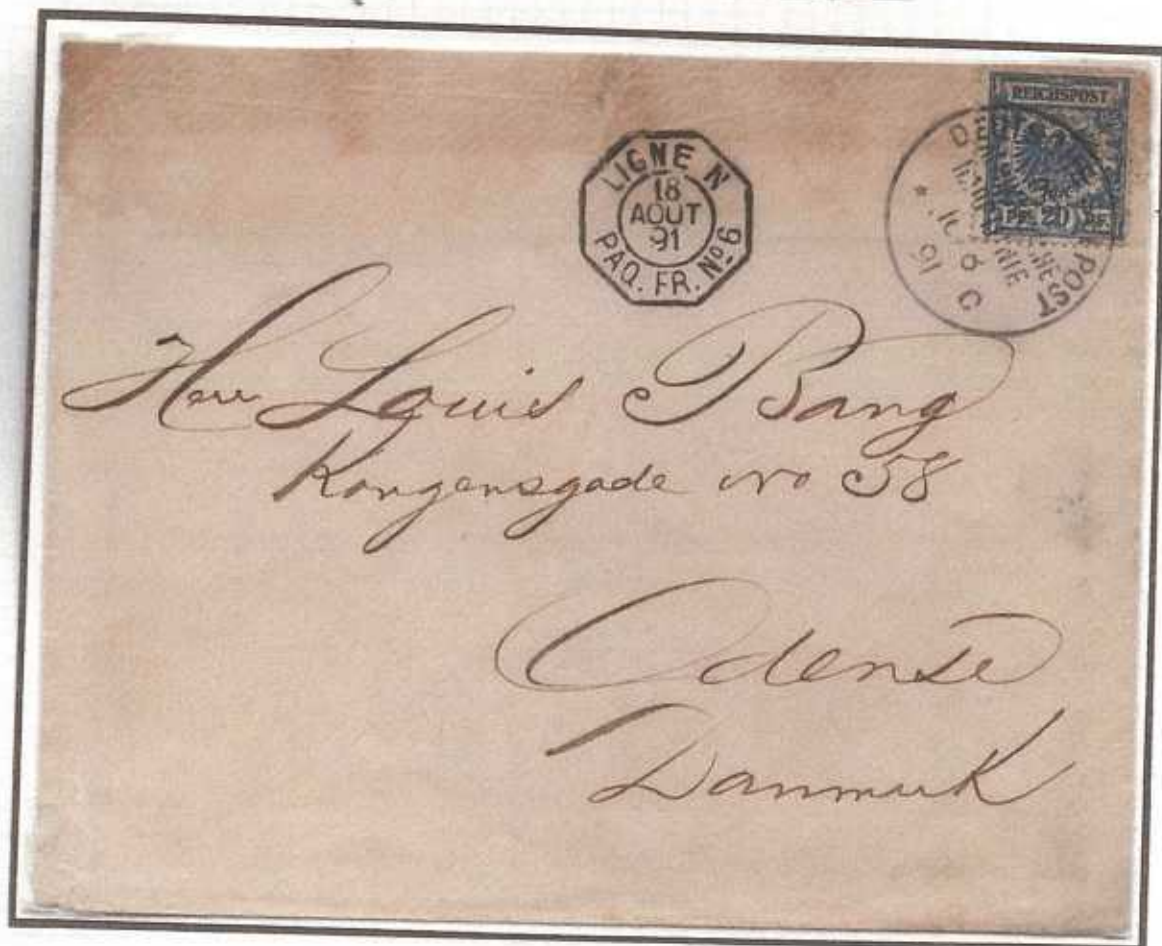 REICHSPOST
PF. 20 PF.
LIGNE N
18
AOUT
91
PAQ. FR. Nº 6
DEUTSCHE
POST
* 91 C
Herr Louis Bang
Kongensgade no 58
Odense
Danmark